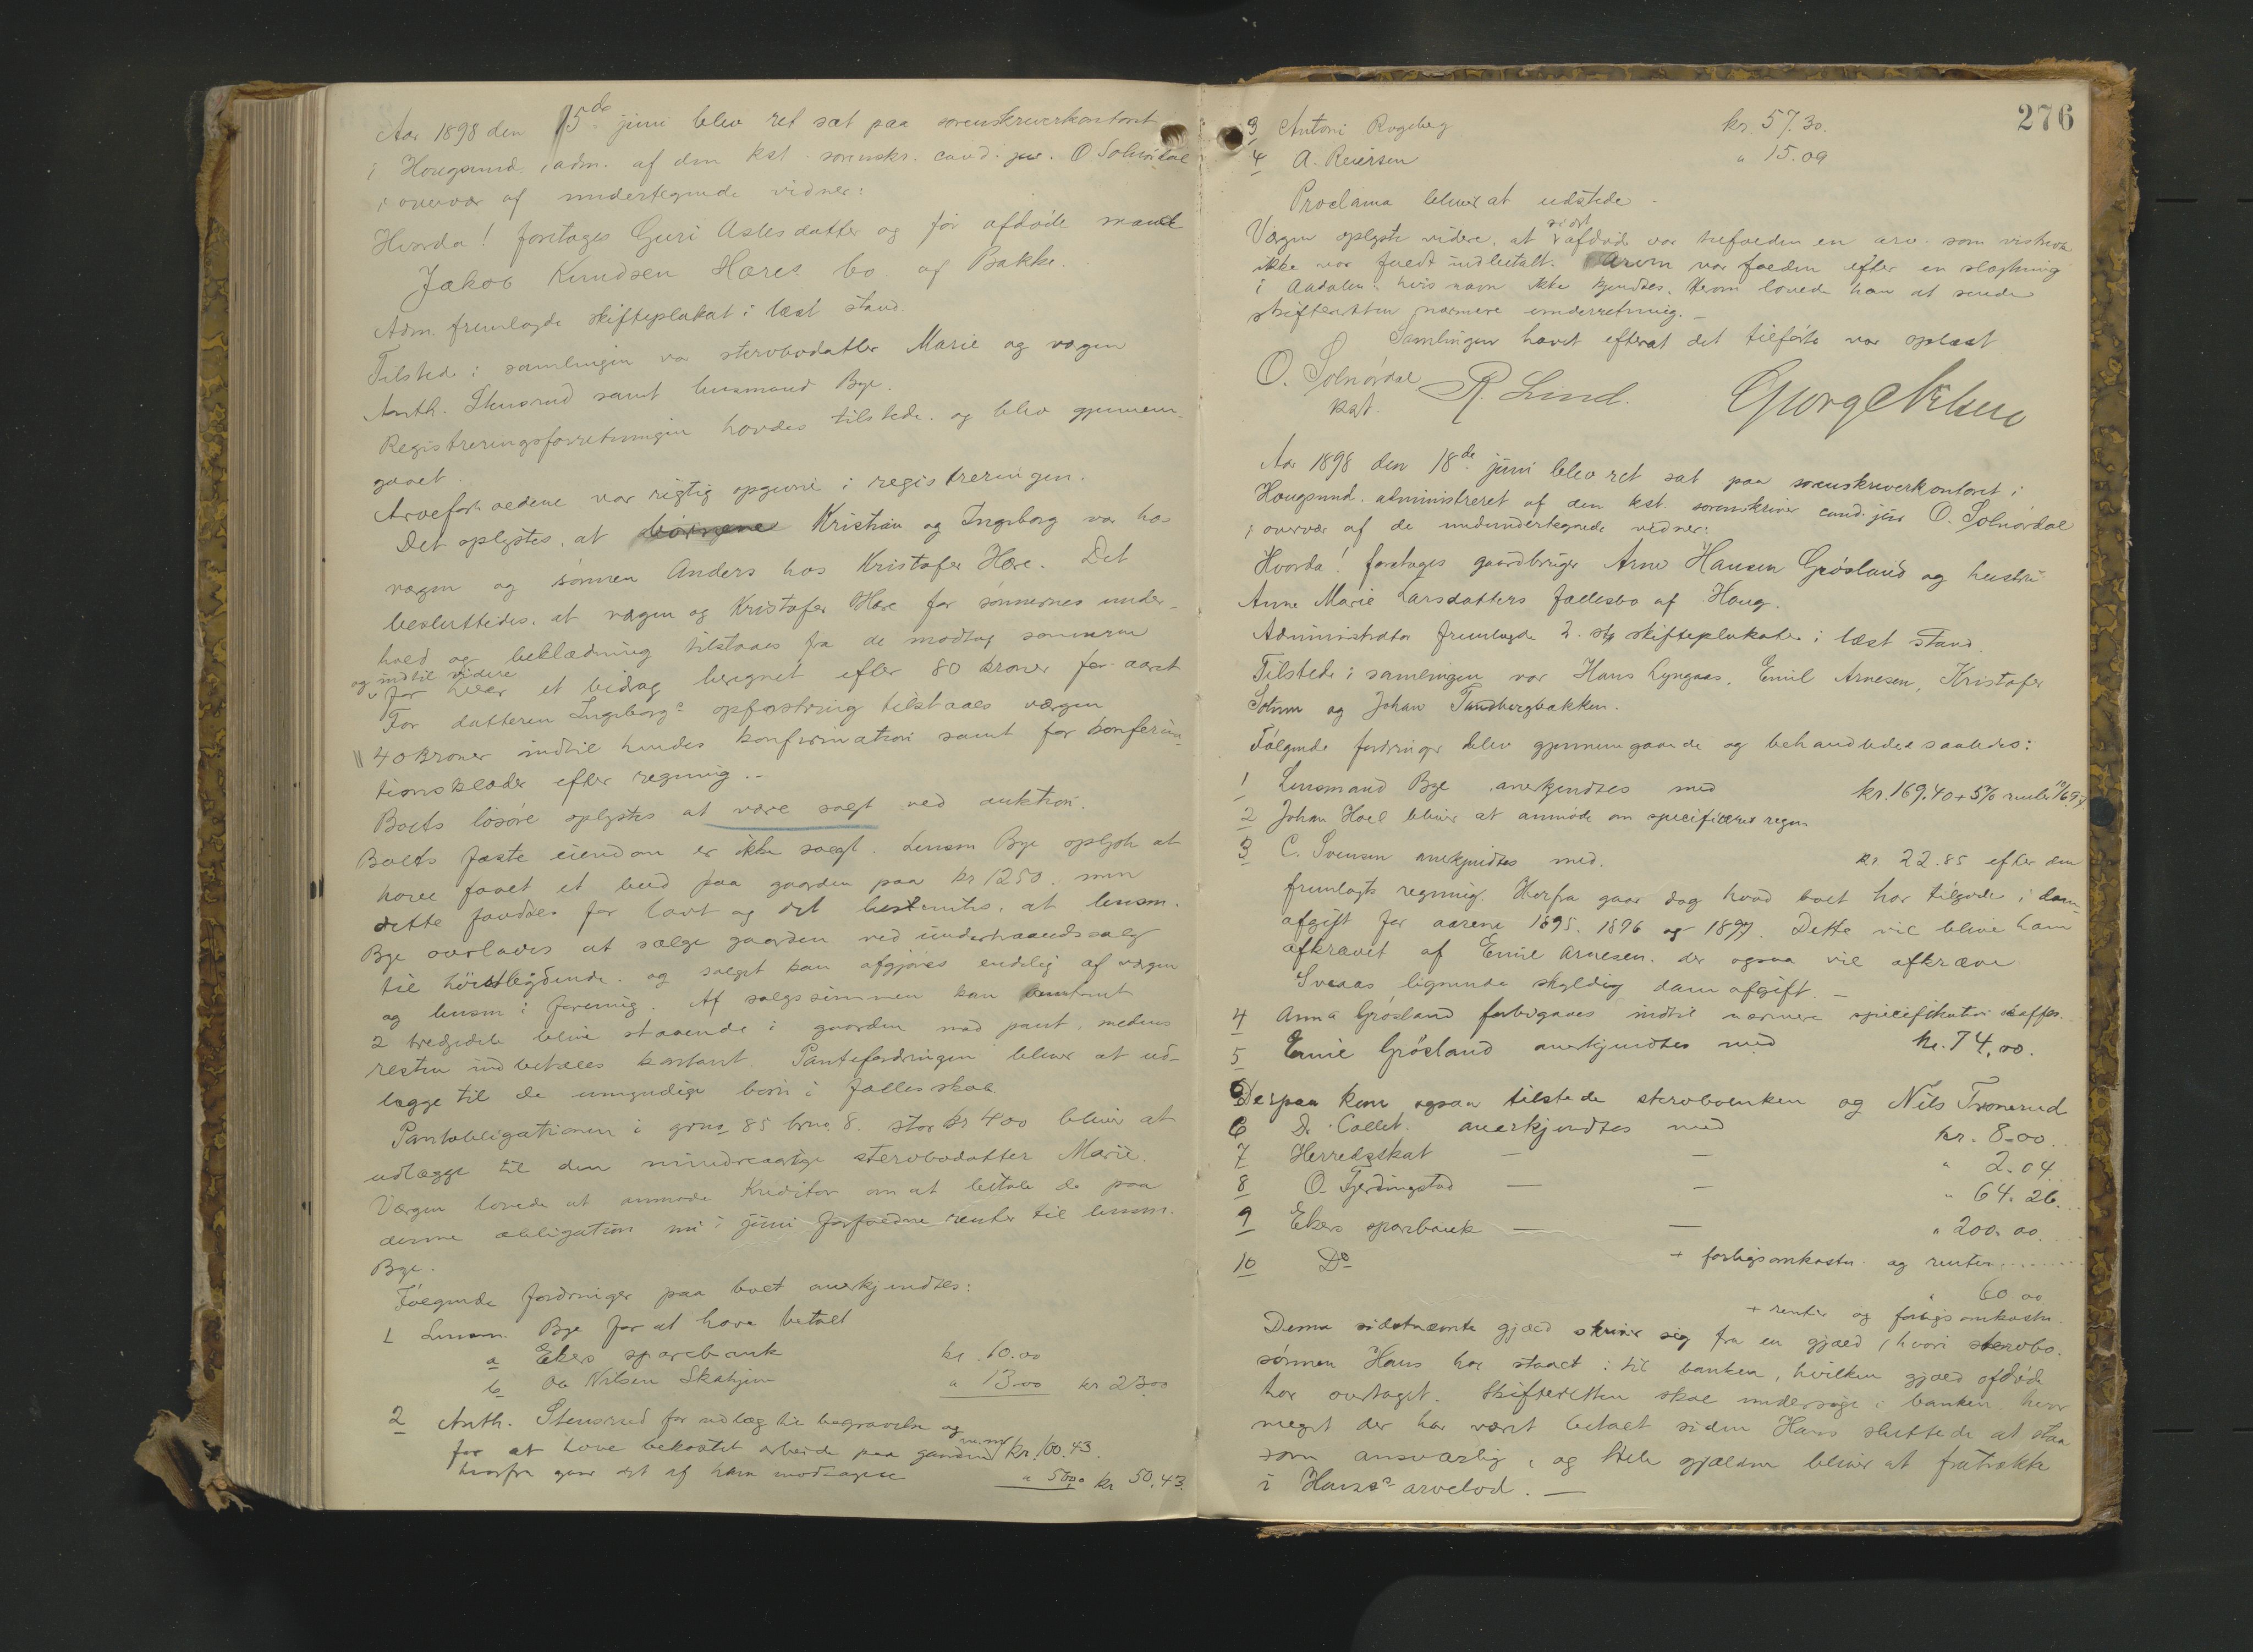 Aar 1898 den 15de juni blev ret sat paa sorenskriverkontoret
i Hougsund, adm. af den kst. sorenskr. cand. jur. O Solnördal
i overvær af undertegnede vidner:
Hvorda! foretages Guri Aslesdatter og før afdøde mand
Jakob Knudsen Hæres bo af Bakke.
Adm. fremlagde skifteplakat i læst stand.
Tilstede i samlingen var stervbodatter Marie og værgen
Anth. Stensrud samt lensmand Bye.
Registreringsforretningen havdes tilstede og blev gjennem-
gaaet.
Arveforholdene var rigtig opgivne i registreringen.
Det oplystes, at børnene Kristian og Ingeborg var hos
værgen og sønnen Anders hos Kristofer Hære. Det
besluttedes, at værgen og Kristofer Hære for sønnernes under-
hold og beklædning tilstaaes fra de modtog sønnerne
og indtil videre
for hver et bidrag beregnet efter 80 kroner for aaret
For datteren Ingeborgs opfostring tilstaaes værgen
40 kroner indtil hendes konfirmation samt for konfirma-
tionsklæder efter regning.-
Boets løsøre oplystes at være solgt ved auktion.
Boets faste eiendom er ikke solgt. Lensm Bye oplyste at
have faaet et bud paa gaarden paa kr 1250. men
dette fandtes for lavt og det bestemtes, at lensm.
Bye overlades at sælge gaarden ved underhaandssalg
til høistbydende, og salget kan afgjøres endelig af værgen
og lensm i forening. Af salgssummen kan
2 tredjedele blive staaende i gaarden mod pant, medens
resten indbetales kontant. Pantefordringen bliver at ud-
lægge til de umyndige børn i fællesskab.
Pantobligationen i grno 85 brno. 8. stor kr 400 bliver at
udlægge til den mindreaarige stervbodatter Marie.
Værgen lovede at anmode Kreditor om at betale de paa
denne obligation nu i juni forfaldne renter til lensm.
Bye.
Følgende fordringer paa boet anerkjendtes:
1 Lensm. Bye for at have betalt
a Ekers sparebank kr. 10.00
b Ole Nilsen Skatjern " 13.00 kr 23.00
2 Anth. Stensrud for udlæg til begravelse og
for at have bekostet arbeide paa gaarden m.m. kr. 100.43.
herfra gaar det af ham modtagne " 50.00 kr 50.43.
276
3 Antoni Rogeberg kr. 57.30.
4 A. Reiersen " 15.09
Proclama bliver at udstede.
Værgen oplyste videre, at sidst afdøde var tilfalden en arv som vistnok
ikke var fuldt indbetalt. Arven var falden efter en slægtning
i Aadalen, hvis navn ikke kjendtes. Herom lovede han at sende
skifteretten nærmere underretning.-
Samlingen hævet efterat det tilførte var oplæst
O. Solnördal
kst.
R. Lind.
Aar 1898 den 18de juni blev ret sat paa sorenskriverkontoret i
Hougsund, administreret af den kst. sorenskriver cand. jur O. Solnördal
i overvær af de undertegnede vidner:
Hvorda! foretages gaardbruger Arne Hansen Grösland og hustru
Anne Marie Larsdatters fællesbo af Houg.
Administrator fremlagde 2. stk skifteplakater i læst stand.
Tilstede i samlingen var Hans Lyngaas, Emil Arnesen, Kristofer
Solum og Johan Tandbergbakken.
Følgende fordringer blev gjennemgaaede og behandledes saaledes:
1 Lensmand Bye anerkjendtes med kr. 169.40 + 5% renter
2 Johan Hoel bliver at anmode om specificeret regn
3 C. Svensen anerkjendtes med. kr. 22.85 efter den
fremlagte regning. Herfra gaar dog hvad boet har tilgode i dam-
afgift for aarene 1895. 1896 og 1897. Dette vil blive ham
afkrævet af Emil Arnesen, der ogsaa vil afkræve
Svaas lignende skyldig dam afgift.-
4 Anna Grösland forbigaaes indtil nærmere specifikation skaffes.
5 Emil Grösland anerkjendtes med kr. 74.00.
Derpaa kom ogsaa tilstede stervboenken og Nils Tronerud
6 Dr. Collet. anerkjendtes med kr. 8.00.
7 Herredsskat — — " 2.04
8 O. Fjerdingstad — — " 64.26.
9 Ekers sparbank — — " 200.00.
+ forligsomkostn. og renter
10 Do " 60.00
+ renter og forligsomkostn.
Denne sidstnævnte gjæld skriver sig fra en gjæld, hvori stervbo-
sønnen Hans har staaet i til banken, hvilken gjæld afdøde
har overtaget. Skifteretten skal undersøge i banken, hvor
meget der har været betalt siden Hans sluttede at staa
som ansvarlig, og hele gjælden bliver at fratrække
i Hans's arvelod.-